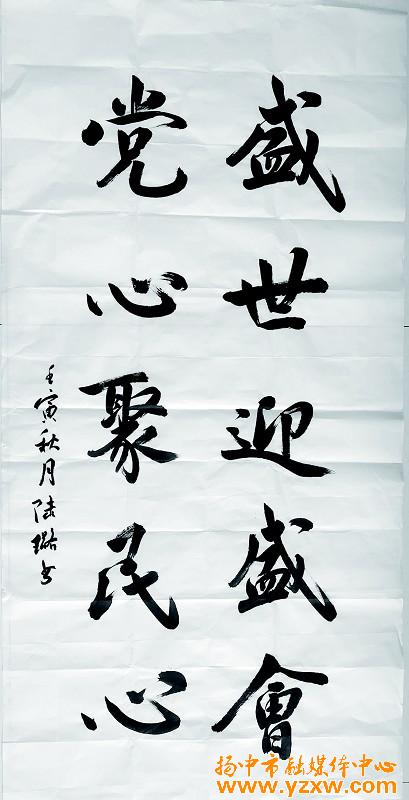 盛世迎盛會
党心聚民心
壬寅秋月陆璐书
扬中市融媒体中心
www.yzxw.com